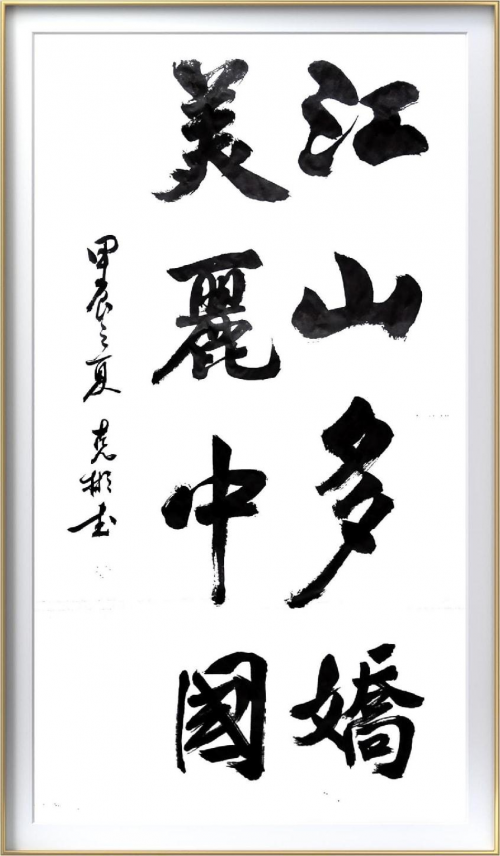 江山多嬌
美麗中國
甲辰之夏 堯彬书